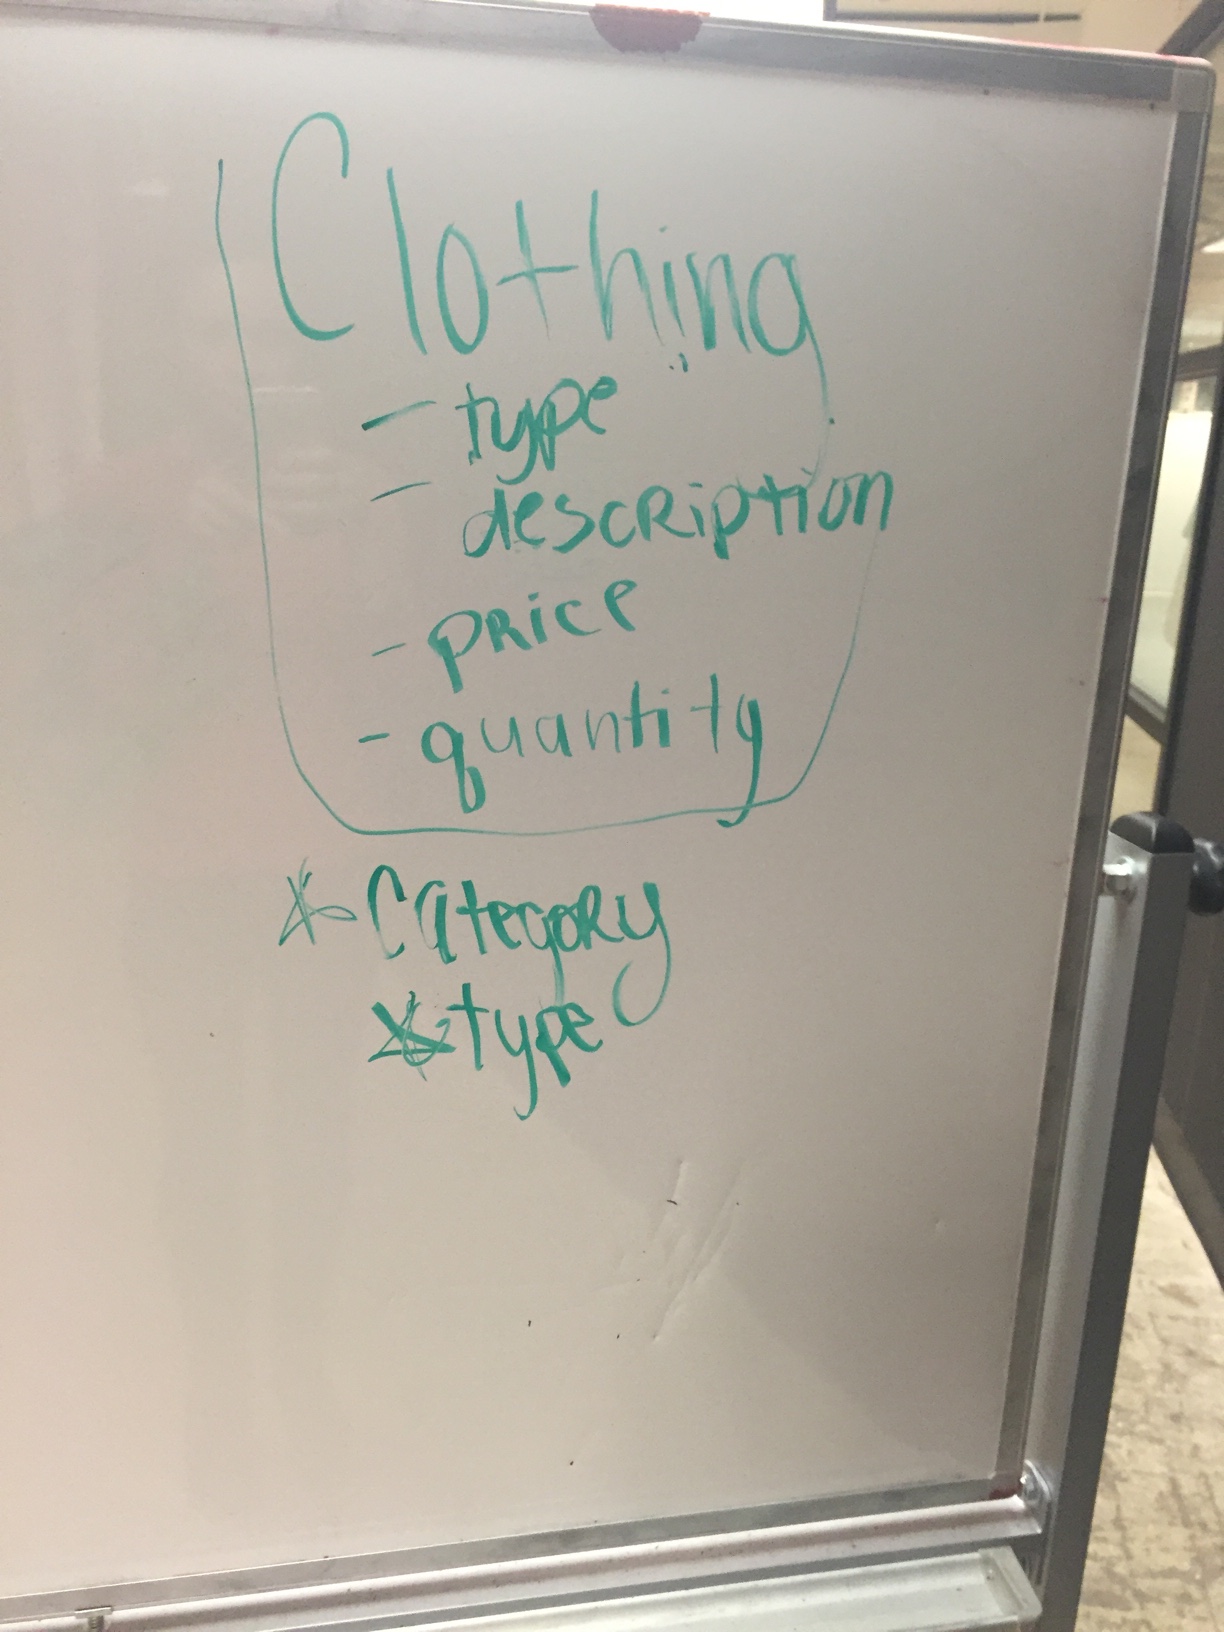 Clothing
- type
- description
- price
- quantity
* Category
* type